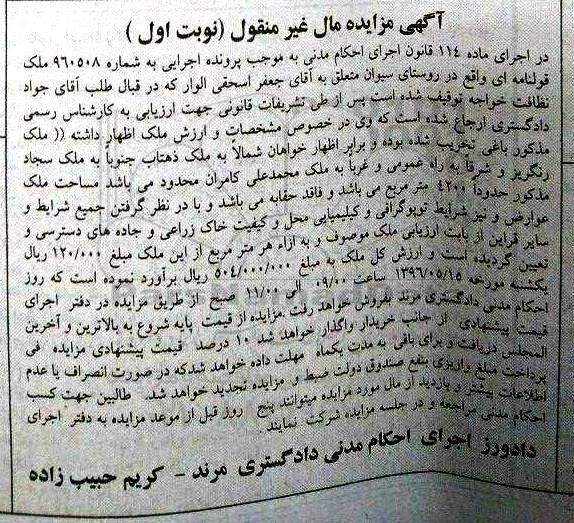 آگهی مزایده مال غیر منقول (نوبت اول )
در اجرای ماده ۱۱۴ قانون اجرای احکام مدنی به موجب پرونده اجرایی به شماره ۹۶۰۵۰۸ ملک
قولنامه ای واقع در روستای سیوان متعلق به آقای جعفر اسحقی الوار که در قبال طلب آقای جواد
نظافت خواجه توقیف شده است پس از طی تشریفات قانونی جهت ارزیابی به کارشناس رسمی
دادگستری ارجاع شده است که وی در خصوص مشخصات و ارزش ملک اظهار داشته (( ملک
مذکور باغی تخریب شده بوده و برابر اظهار خواهان شمالاً به ملک ذهتاب جنوباً به ملک سجاد
رنگریز و شرقاً به راه عمومی و غرباً به ملک محمدعلی کامران محدود می باشد مساحت ملک
مذکور حدوداً ۴۲۰۰ متر مربع می باشد و فاقد حقابه می باشد و با در نظر گرفتن جمیع شرایط و
عوارض و نیز شرایط توپوگرافی و کیلیمیایی محل و کیفیت خاک زراعی و جاده های دسترسی و
سایر قراین از بابت ارزیابی ملک موصوف و به ازاء هر متر مربع از این ملک مبلغ ۱۲۰/۰۰۰ ریال
تعیین گردیده است و ارزش کل ملک به مبلغ ۵۰۴/۰۰۰/۰۰۰ ریال برآورد نموده است که روز
یکشنبه مورخه ۱۳۹۶/۰۵/۱۵ ساعت ۰۹/۰۰ الی ۱۱/۰۰ صبح از طریق مزایده در دفتر اجرای
احکام مدنی دادگستری مرند بفروش خواهد رفت .مزایده از قیمت پایه شروع به بالاترین و آخرین
قیمت پیشنهادی از جانب خریدار واگذار خواهد شد ۱۰ درصد قیمت پیشنهادی مزایده فی
المجلس دریافت و برای باقی به مدت یکماه مهلت داده خواهد شدکه در صورت انصراف یا عدم
پرداخت مبلغ واریزی بنفع صندوق دولت ضبط و مزایده تجدید خواهد شد. طالبین جهت کسب
اطلاعات بیشتر و بازدید از مال مورد مزایده میتوانند پنج روز قبل از موعد مزایده به دفتر اجرای
احکام مدنی مراجعه و در جلسه مزایده شرکت نمایند .
دادورز اجرای احکام مدنی دادگستری مرند - کریم حبیب زاده